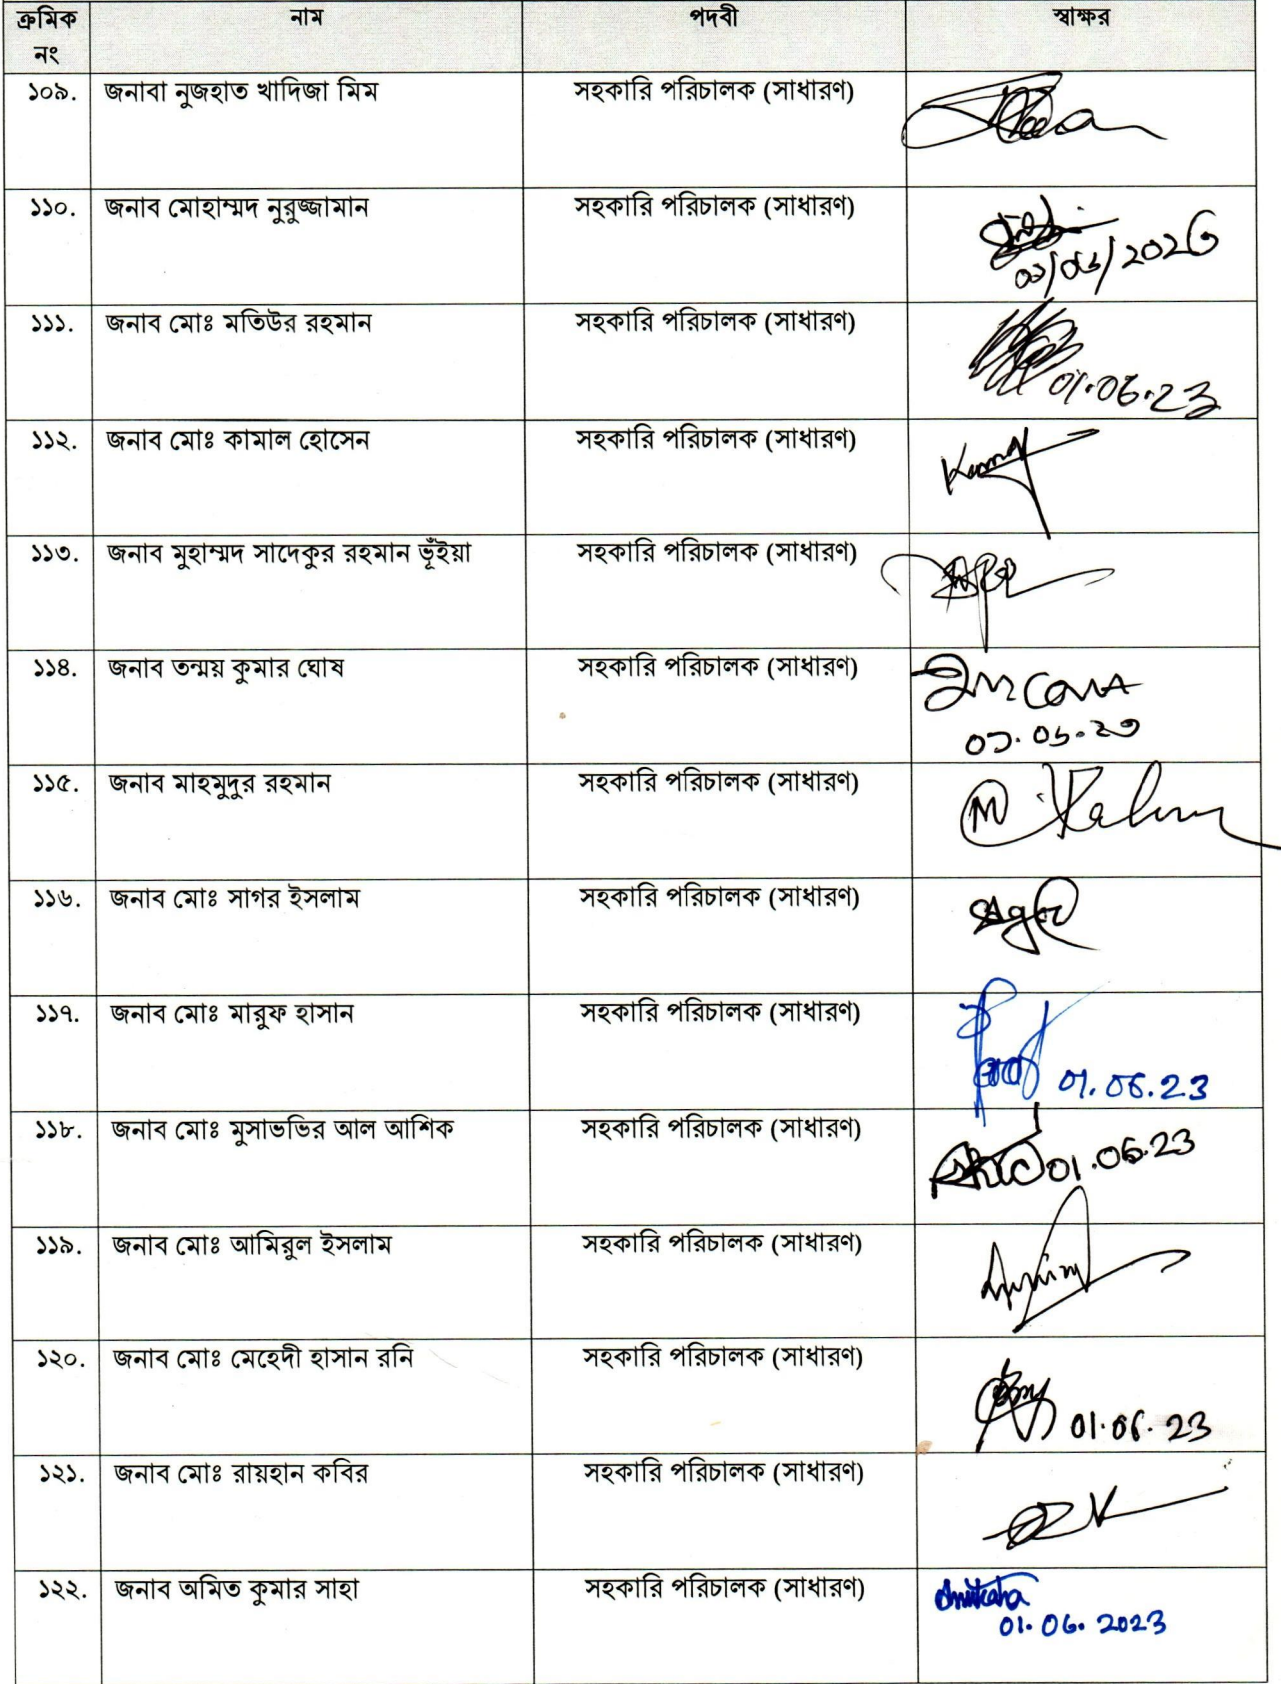 ক্রমিক নাম পদবী স্বাক্ষর
নং
১০৯. জনাবা নুজহাত খাদিজা মিম সহকারি পরিচালক (সাধারণ)
১১০. জনাব মোহাম্মদ নুরুজ্জামান সহকারি পরিচালক (সাধারণ)
১১১. জনাব মোঃ মতিউর রহমান সহকারি পরিচালক (সাধারণ)
01.06.23
১১২. জনাব মোঃ কামাল হোসেন সহকারি পরিচালক (সাধারণ)
১১৩. জনাব মুহাম্মদ সাদেকুর রহমান ভূঁইয়া সহকারি পরিচালক (সাধারণ)
১১৪. জনাব তন্ময় কুমার ঘোষ সহকারি পরিচালক (সাধারণ)
১১৫. জনাব মাহমুদুর রহমান সহকারি পরিচালক (সাধারণ)
১১৬. জনাব মোঃ সাগর ইসলাম সহকারি পরিচালক (সাধারণ)
১১৭. জনাব মোঃ মারুফ হাসান সহকারি পরিচালক (সাধারণ)
01.06.23
১১৮. জনাব মোঃ মুসাভভির আল আশিক সহকারি পরিচালক (সাধারণ)
01.06.23
১১৯. জনাব মোঃ আমিরুল ইসলাম সহকারি পরিচালক (সাধারণ)
১২০. জনাব মোঃ মেহেদী হাসান রনি সহকারি পরিচালক (সাধারণ)
01.06.23
১২১. জনাব মোঃ রায়হান কবির সহকারি পরিচালক (সাধারণ)
১২২. জনাব অমিত কুমার সাহা সহকারি পরিচালক (সাধারণ)
01.06.2023